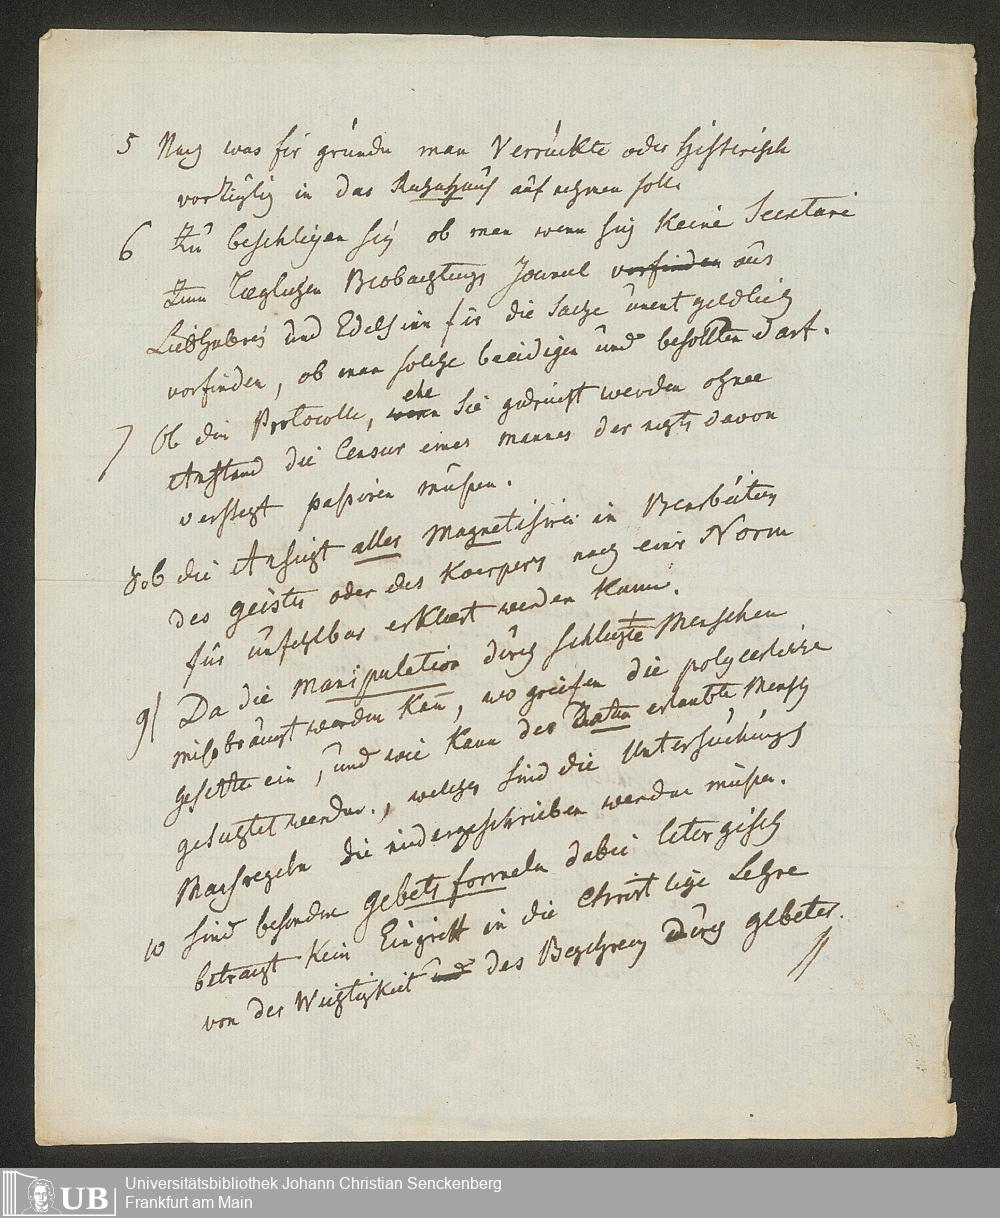 5 Nach was für gründen man Verrückte oder Histerisch
vorzüglich in das aúf nehmen soll.
6 Zú beschliesen seÿ ob man wenn sich keine Secretarie
zum Tæglichen Beobachtungs Journal vorfinden aús
Liebhaberei únd Edelsinn für die Sache únentgeldlich
vorfinden, ob man solche beeidigen únd besollten darf.
7 Ob die Protocolle, wenn ehe Sie gedrúckt werden ohne
Anstand die Censur eines mannes der nichts davon
versteht passiren müssen.
8 ob die Ansicht alles Magnetisirei in Bearbeitung
des geistes oder des Koerpers nach einer Norm
für únfehlbar erklært werden kann.
9) Da die Manipulation dúrch schlechte Menschen
misbraúcht werden kan, wo greifen die polyceiliche
gesetze ein, únd wie kann der erlaubte Mensch
geschützt werden., welches sind die Untersúchúngs
Maasregeln die niedergeschrieben werden müssen.
10 Sind besondere gebets formeln dabei litergisch
betracht kein Eingriff in die Christliche Lehre
von der Wichtigkeit únd des dúrch gebeter.
Universitätsbibliothek Johann Christian Senckenberg
Frankfurt am Main
UB